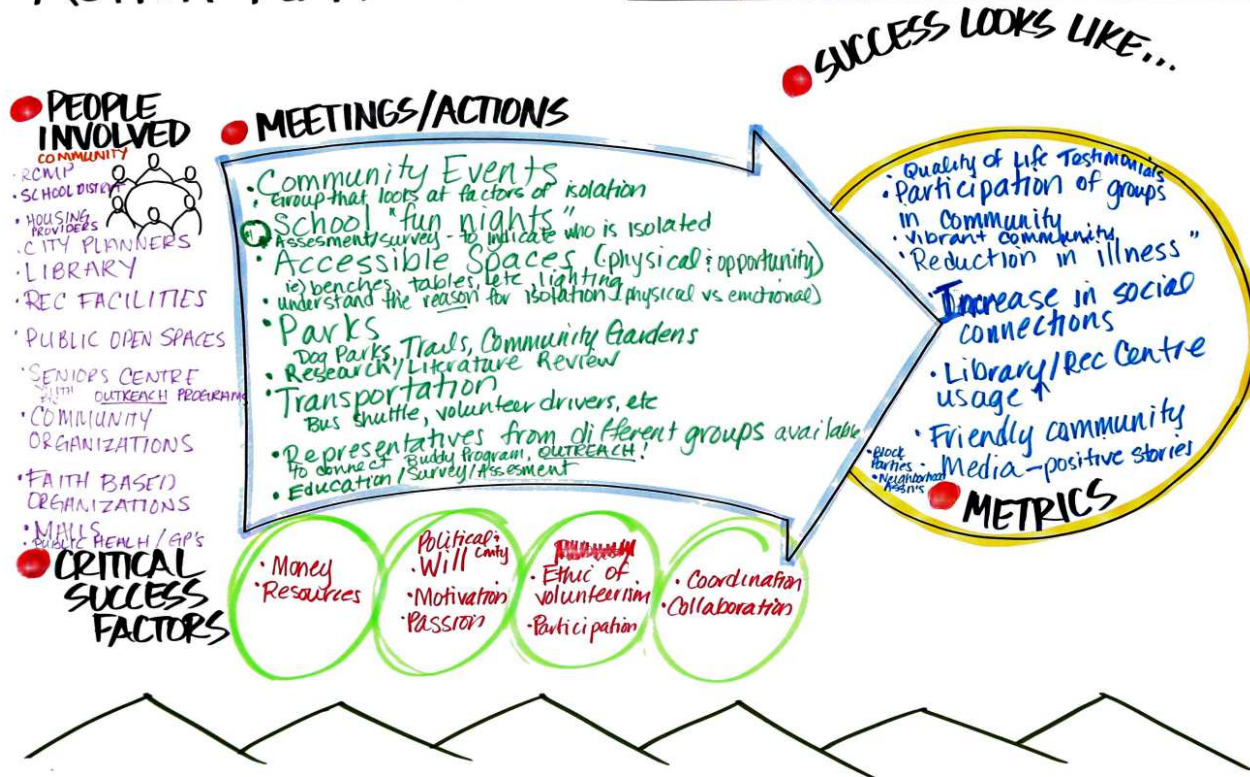 SUCCESS LOOKS LIKE...
PEOPLE
INVOLVED
COMMUNITY
· RCMP
· SCHOOL DISTRICT
· HOUSING
PROVIDERS
· CITY PLANNERS
· LIBRARY
· REC FACILITIES
· PUBLIC OPEN SPACES
· SENIORS CENTRE
OUTREACH PROGRAMS
· COMMUNITY
ORGANIZATIONS
· FAITH BASED
ORGANIZATIONS
· MALLS
· PUBLIC HEALTH / GP'S
MEETINGS/ACTIONS
· Community Events
· Group that looks at factors of isolation
· School "fun nights"
Assesment/survey - to indicate who is isolated
· Accessible Spaces (physical & opportunity)
ie) benches, tables, etc, lighting
· understand the reason for isolation (physical vs emotional)
· Parks
Dog Parks, Trails, Community Gardens
· Research/Literature Review
· Transportation
Bus shuttle, volunteer drivers, etc
· Representatives from different groups available
to connect Buddy Program, OUTREACH!
· Education/Survey/Assesment
· Quality of Life Testimonials
· Participation of groups
in community
· vibrant community
· Reduction in illness "
· Increase in social
connections
· Library/Rec Centre
usage ↑
· Friendly community
· Block
Parties
· Neighborhood
Assn's
· Media - positive stories
METRICS
CRITICAL
SUCCESS
FACTORS
· Money
· Resources
Political &
· Will Cmty
· Motivation
· Passion
· Ethic of
volunteerism
· Participation
· Coordination
· Collaboration